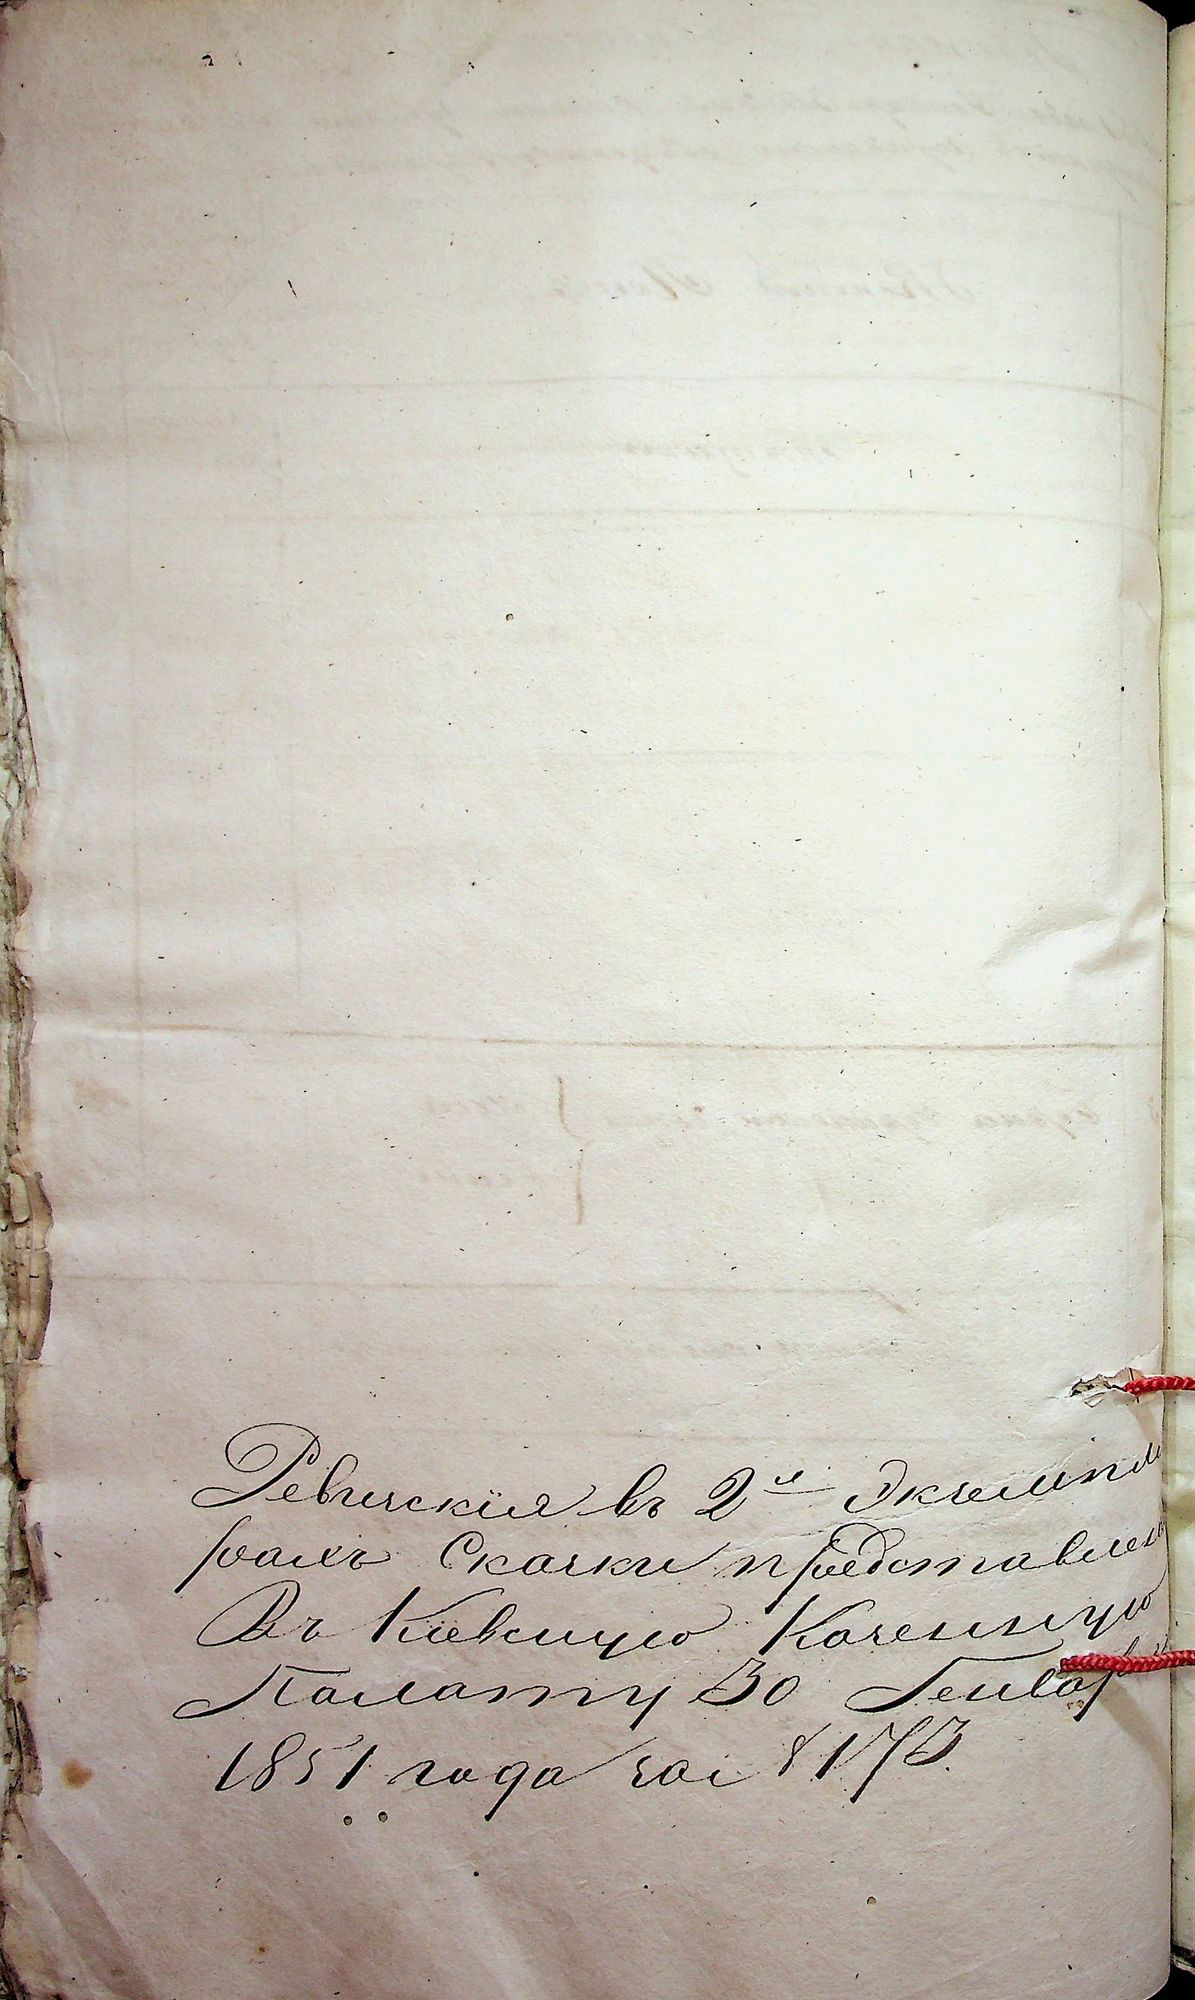 Ревизскія въ 2хъ Экземпля
рахъ Сказки представлены
Въ Кіевскую Казенную
Палату 30 Генваря
1851 года за № 173.